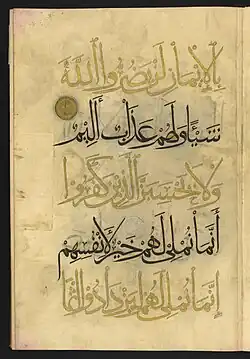 بالإيمان لن يضروا الله
شيئا ولهم عذاب أليم
ولا يحسبن الذين كفروا
أنما نملي لهم خير لأنفسهم
إنما نملي لهم ليزدادوا إثما